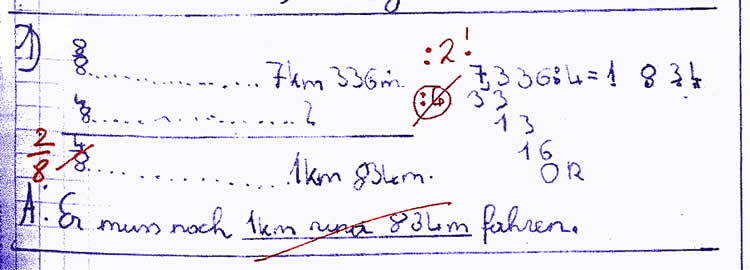 :2!
1) 8/8 .................... 7km 336m. :4 7336:4=1 834
4/8 .................... ? 33
13
2/8 4/8 .................... 1km 834m. 16
0R
A: Er muss noch 1km und 834m fahren.